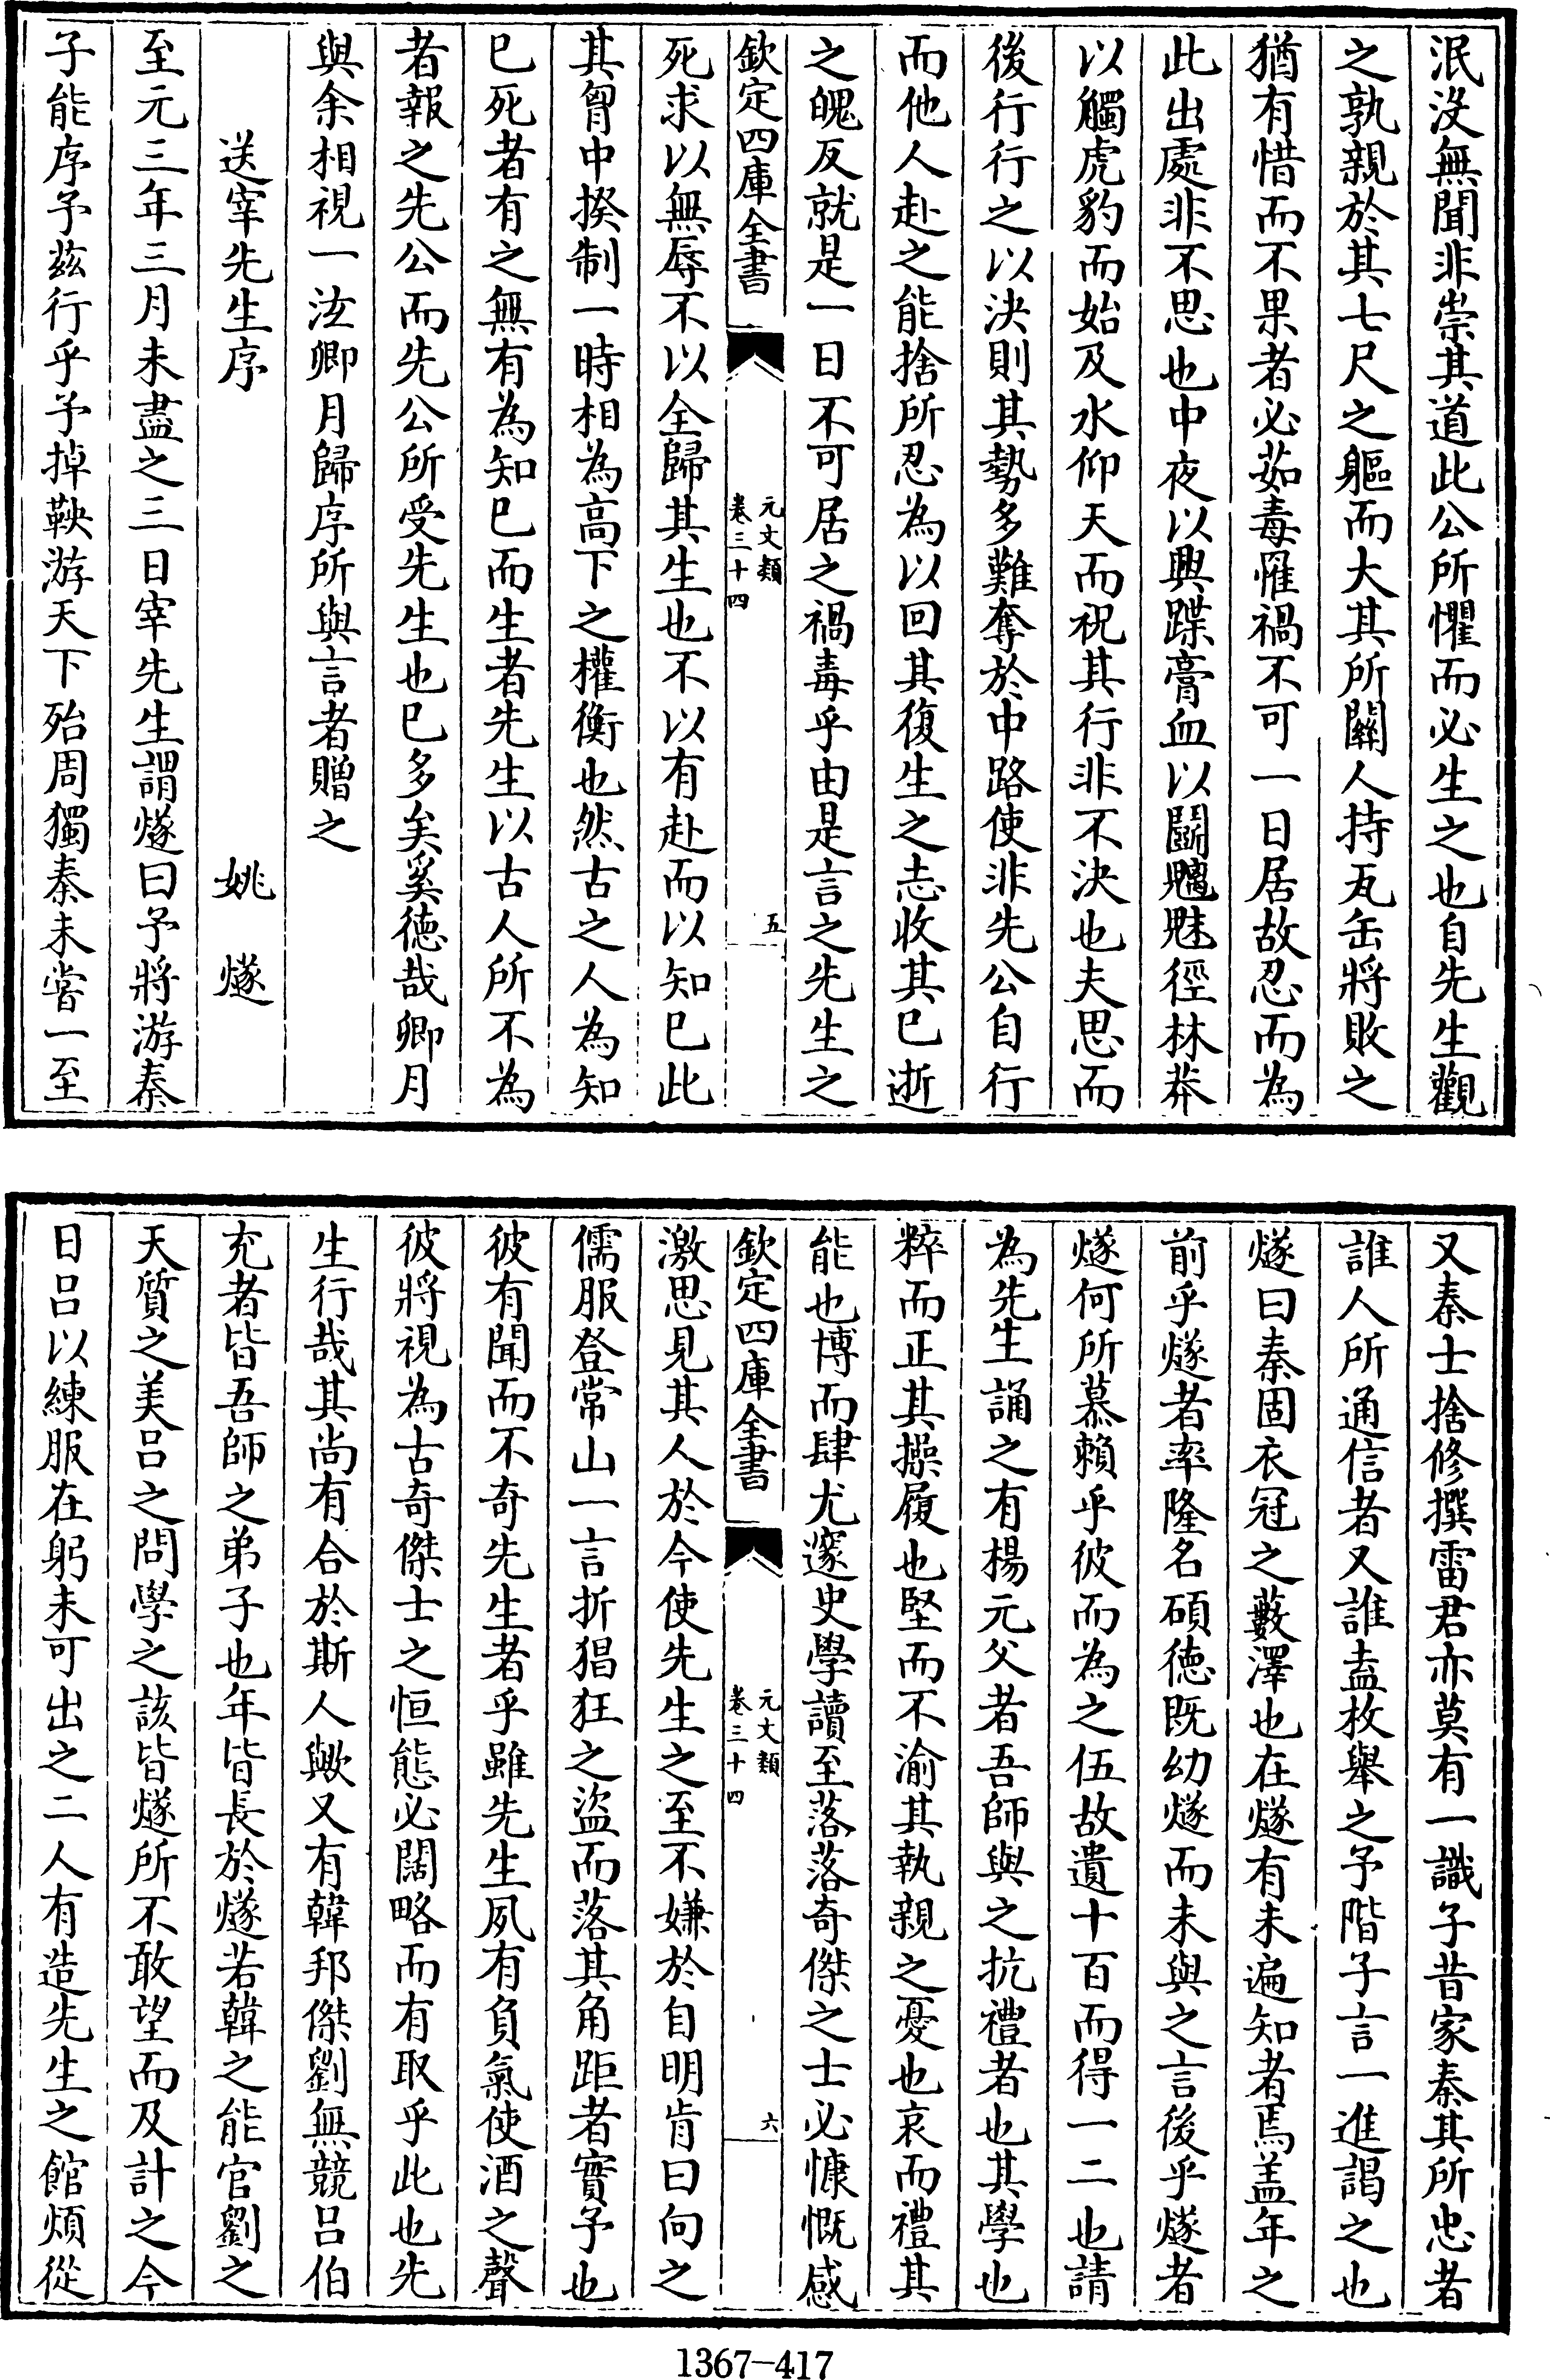 泯沒無聞非崇其道此公所懼而必生之也自先生觀
之孰親於其七尺之軀而大其所關人持瓦缶將敗之
猶有惜而不果者必茹毒罹禍不可一日居故忍而為
此出處非不思也中夜以興蹀膏血以鬭魑魅徑林莽
以觸虎豹而始及水仰天而祝其行非不決也夫思而
後行行之以決則其勢多難奪於中路使非先公自行
而他人赴之能捨所忍為以回其復生之志收其已逝
之魄反就是一日不可居之禍毒乎由是言之先生之
欽定四庫全書
元文類
卷三十四
五
死求以無辱不以全歸其生也不以有赴而以知已此
其胷中揆制一時相為高下之權衡也然古之人為知
已死者有之無有為知已而生者先生以古人所不為
者報之先公而先公所受先生也已多矣奚德哉卿月
與余相視一泫卿月歸序所與言者贈之
送宰先生序
姚燧
至元三年三月未盡之三日宰先生謂燧曰予將游秦
子能序予茲行乎予掉鞅游天下殆周獨秦未嘗一至
又秦士捨修撰雷君亦莫有一識子昔家秦其所忠者
誰人所通信者又誰盍枚舉之予階子言一進謁之也
燧曰秦固衣冠之藪澤也在燧有未遍知者焉盖年之
前乎燧者率隆名碩德既幼燧而未與之言後乎燧者
燧何所慕賴乎彼而為之伍故遺十百而得一二也請
為先生誦之有楊元父者吾師與之抗禮者也其學也
粹而正其操履也堅而不渝其執親之憂也哀而禮其
能也博而肆尤邃史學讀至落落奇傑之士必慷慨感
欽定四庫全書
元文類
卷三十四
六
激思見其人於今使先生之至不嫌於自明肯曰向之
儒服登常山一言折猖狂之盜而落其角距者實予也
彼有聞而不奇先生者乎雖先生夙有負氣使酒之聲
彼將視為古奇傑士之恒態必闊略而有取乎此也先
生行哉其尚有合於斯人歟又有韓邦傑劉無競呂伯
充者皆吾師之弟子也年皆長於燧若韓之能官劉之
天質之美呂之問學之該皆燧所不敢望而及計之今
日呂以練服在躬未可出之二人有造先生之館煩從
1367-417